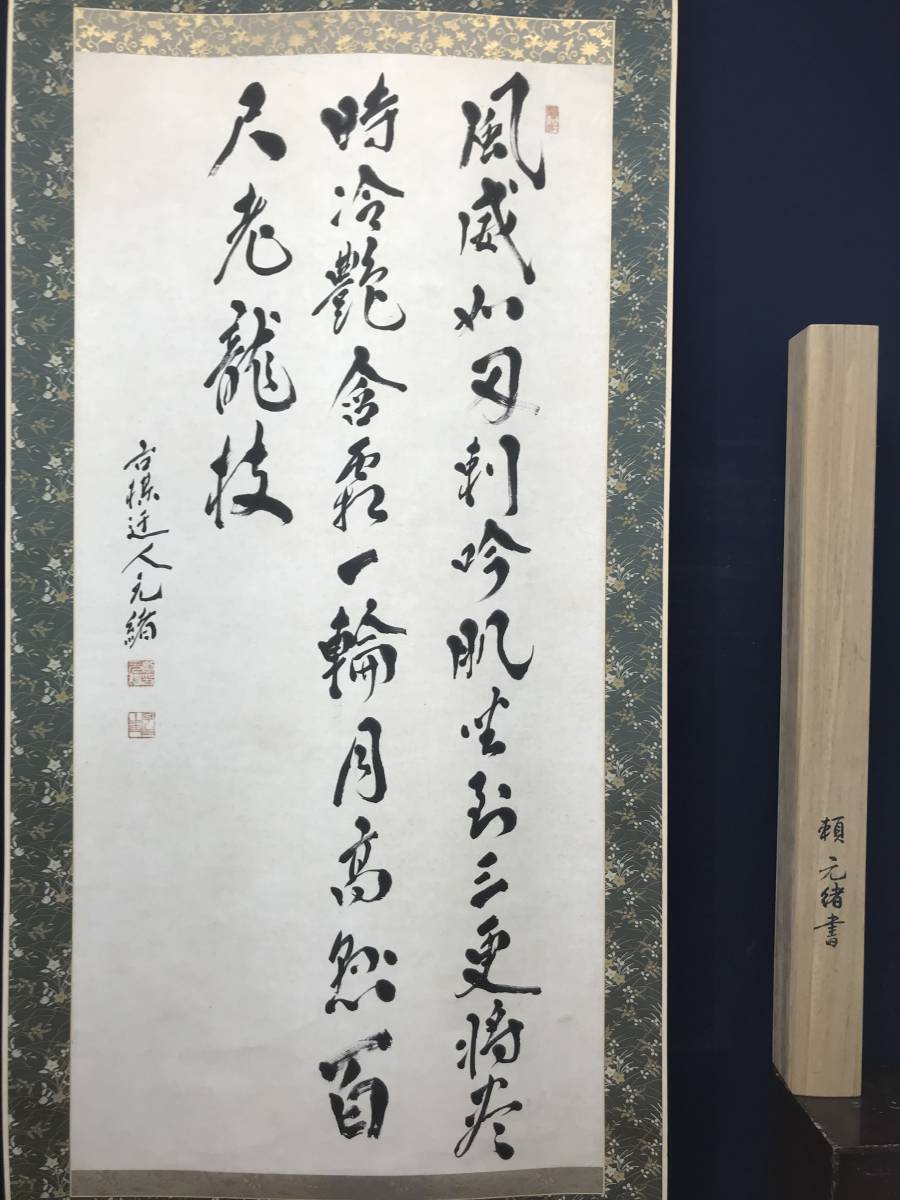 風威如刃刺吟肌坐到三更將尽
時冷艶含霜一輪月高懸百
尺老龍枝
古楳迂人元緒
頼元緒書